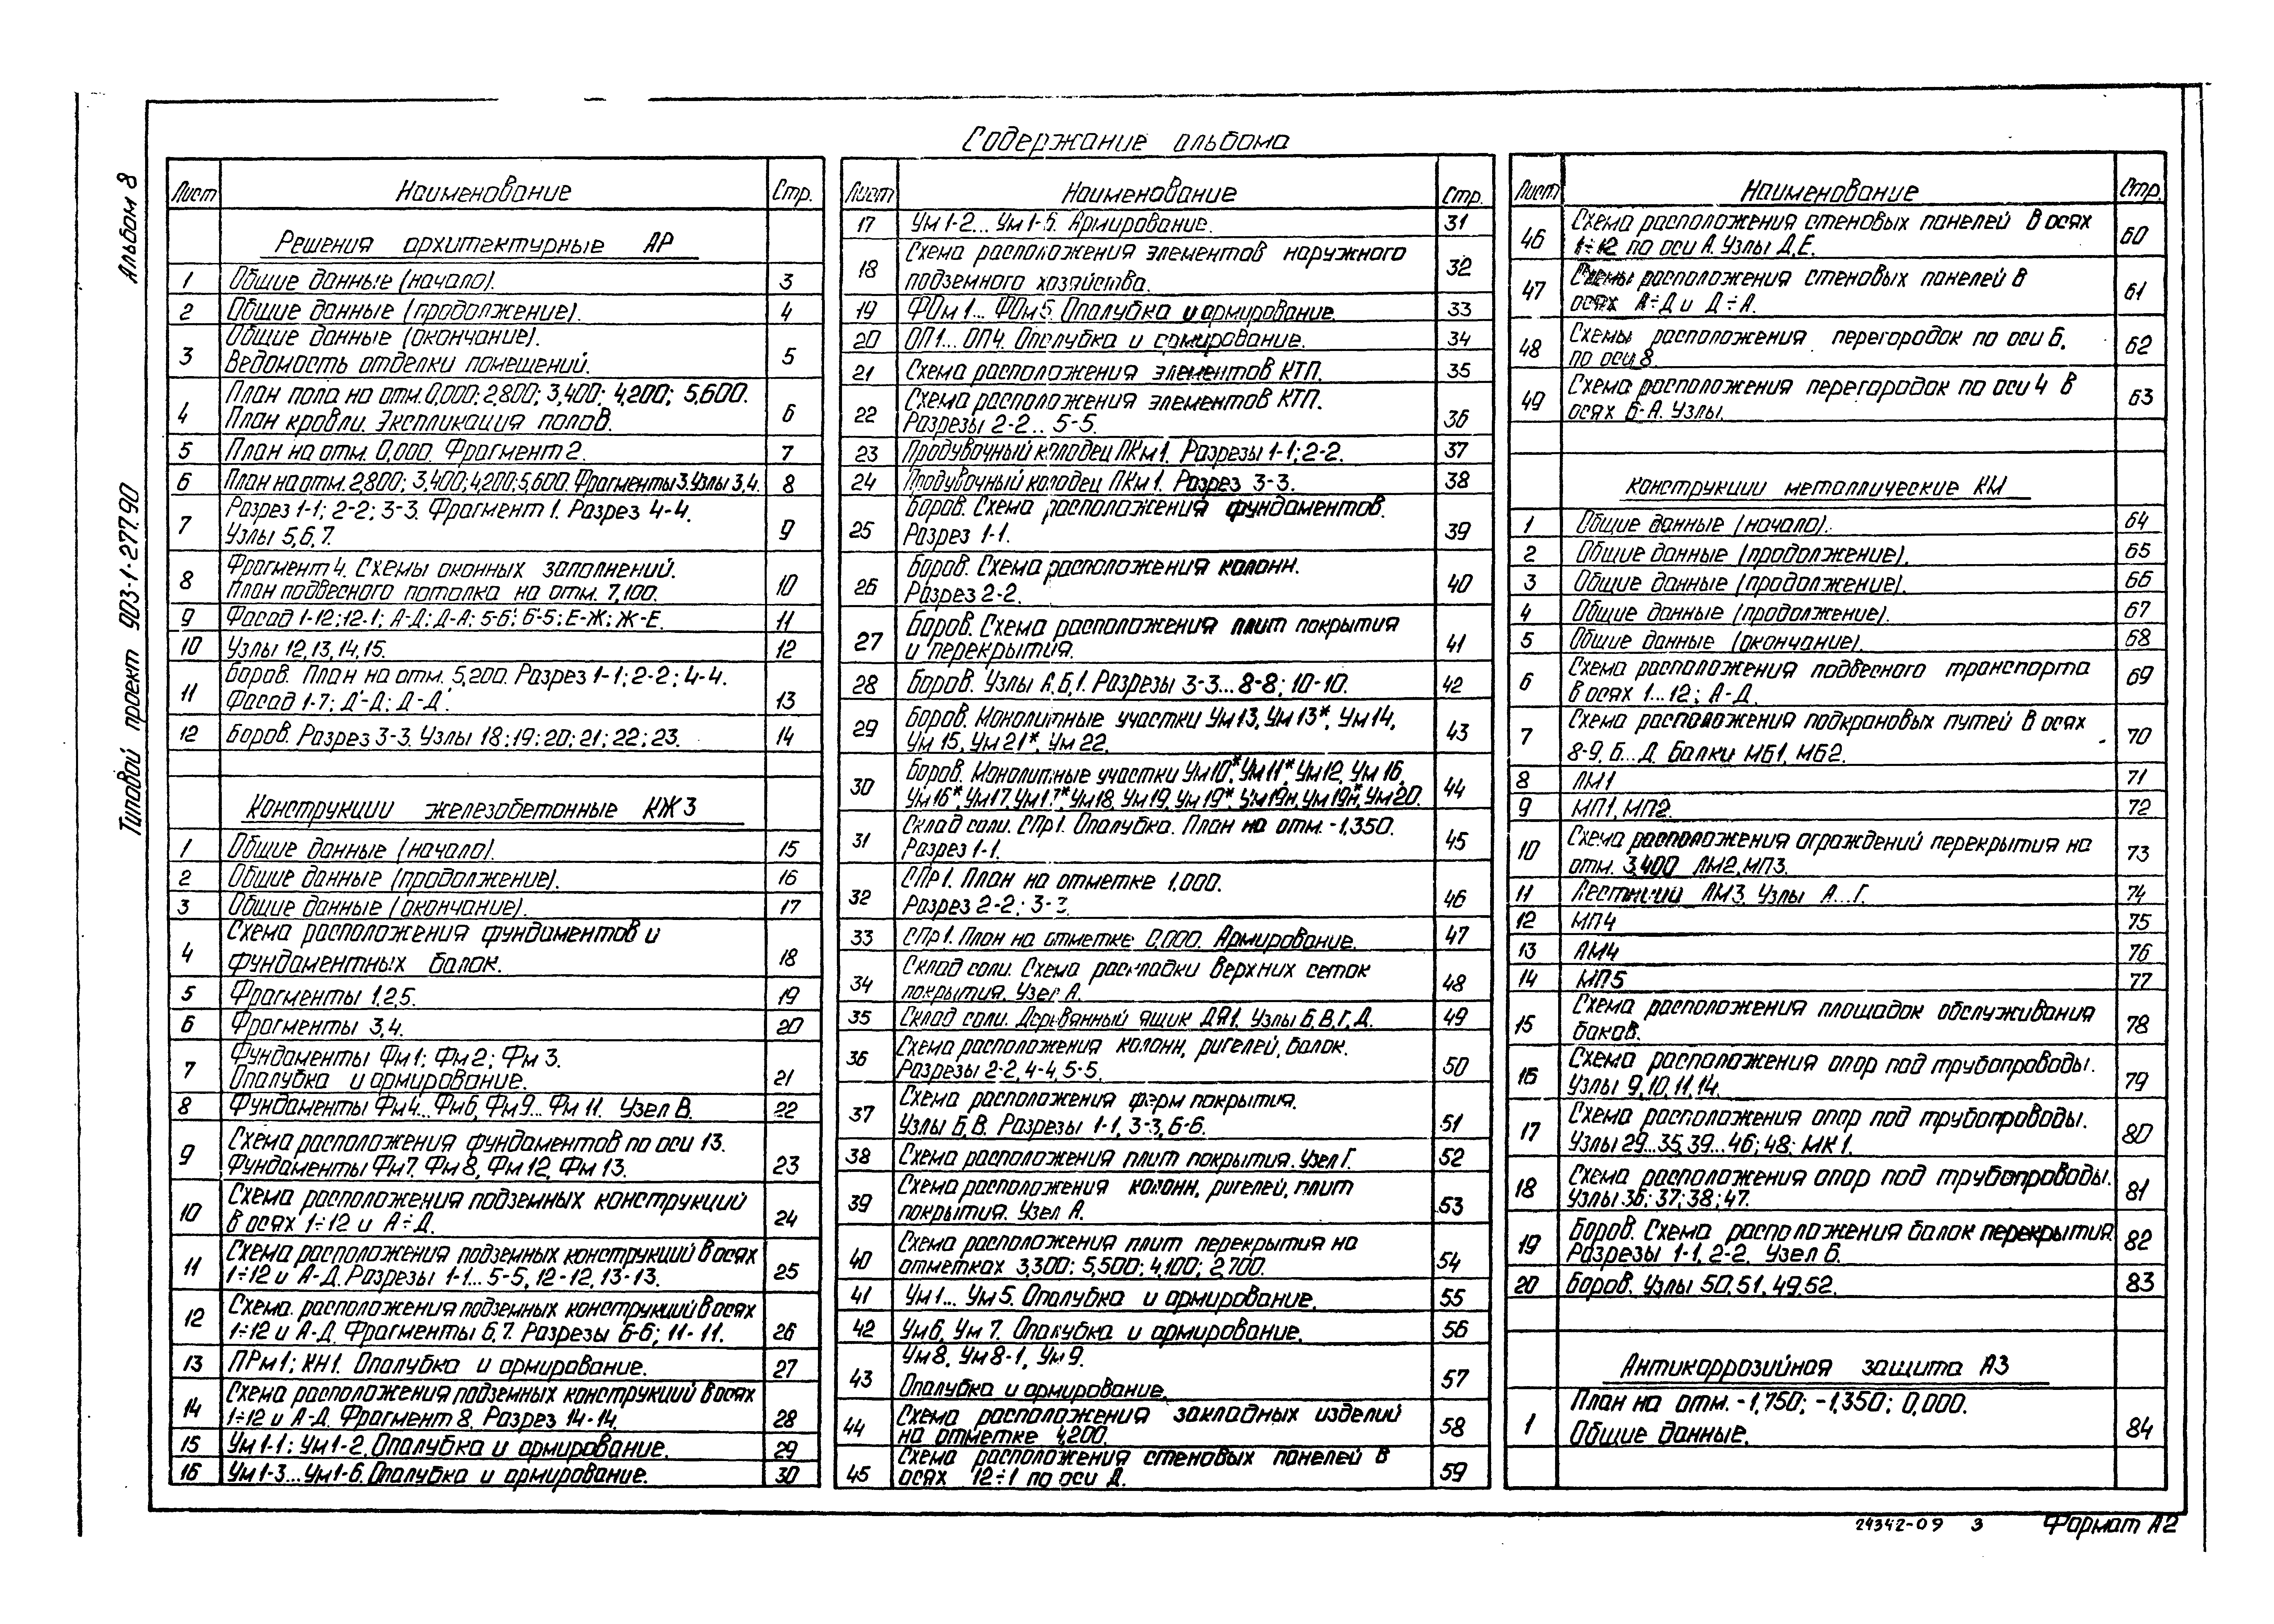 Содержание альбома
Альбом 8
Типовой проект 903-1-277.90
Лист Наименование Стр.
Решения архитектурные АР
1 Общие данные (начало). 3
2 Общие данные (продолжение). 4
Общие данные (окончание).
3 Ведомость отделки помещений. 5
План пола на отм. 0,000; 2,800; 3,400; 4,200; 5,600.
4 План кровли. Экспликация полов. 6
5 План на отм. 0,000. Фрагмент 2. 7
6 План на отм. 2,800; 3,400; 4,200; 5,600. Фрагменты 3. Узлы 3,4. 8
Разрез 1-1; 2-2; 3-3. Фрагмент 1. Разрез 4-4.
7 Узлы 5,6,7. 9
Фрагмент 4. Схемы оконных заполнений.
8 План подвесного потолка на отм. 7,100. 10
9 Фасад 1-12; 12-1; А-Д; Д-А; 5-6; 6-5; Е-Ж; Ж-Е. 11
10 Узлы 12,13,14,15. 12
Боров. План на отм. 5,200. Разрез 1-1; 2-2; 4-4.
11 Фасад 1-7; Д'-Д; Д-Д'. 13
12 Боров. Разрез 3-3. Узлы 18; 19; 20; 21; 22; 23. 14
Конструкции железобетонные КЖ3
1 Общие данные (начало). 15
2 Общие данные (продолжение). 16
3 Общие данные (окончание). 17
Схема расположения фундаментов и
4 фундаментных балок. 18
5 Фрагменты 1,2,5. 19
6 Фрагменты 3,4. 20
Фундаменты Фм1; Фм2; Фм3.
7 Опалубка и армирование. 21
8 Фундаменты Фм4... Фм6, Фм9... Фм11. Узел В. 22
Схема расположения фундаментов по оси 13.
9 Фундаменты Фм7, Фм8, Фм12, Фм13. 23
Схема расположения подземных конструкций
10 в осях 1÷12 и А÷Д. 24
Схема расположения подземных конструкций в осях
11 1÷12 и А-Д. Разрезы 1-1... 5-5, 12-12, 13-13. 25
Схема расположения подземных конструкций в осях
12 1÷12 и А-Д. Фрагменты 6,7. Разрезы 6-6; 11-11. 26
13 ПРм1; КН1. Опалубка и армирование. 27
Схема расположения подземных конструкций в осях
14 1÷12 и А-Д. Фрагмент 8. Разрез 14-14. 28
15 Ум1-1; Ум1-2. Опалубка и армирование. 29
16 Ум1-3... Ум1-6. Опалубка и армирование. 30
Лист Наименование Стр.
17 Ум1-2... Ум1-6. Армирование. 31
Схема расположения элементов наружного
18 подземного хозяйства. 32
19 ФОм1... ФОм5. Опалубка и армирование. 33
20 ОП1... ОП4. Опалубка и армирование. 34
21 Схема расположения элементов КТП. 35
Схема расположения элементов КТП.
22 Разрезы 2-2.. 5-5. 36
23 Продувочный колодец ПКм1. Разрезы 1-1; 2-2. 37
24 Продувочный колодец ПКм1. Разрез 3-3. 38
Боров. Схема расположения фундаментов.
25 Разрез 1-1. 39
Боров. Схема расположения колонн.
26 Разрез 2-2. 40
Боров. Схема расположения плит покрытия
27 и перекрытия. 41
28 Боров. Узлы А,Б,1. Разрезы 3-3... 8-8; 10-10. 42
Боров. Монолитные участки Ум13, Ум13*, Ум14,
29 Ум15, Ум21*, Ум22. 43
Боров. Монолитные участки Ум10*, Ум11*, Ум12, Ум16,
30 Ум16*, Ум17, Ум17*, Ум18, Ум19, Ум19*, Ум19н, Ум19н*, Ум20. 44
Склад соли. СПр1. Опалубка. План на отм. -1,350.
31 Разрез 1-1. 45
СПр1. План на отметке 1.000.
32 Разрез 2-2; 3-3. 46
33 СПр1. План на отметке 0,000. Армирование. 47
Склад соли. Схема раскладки верхних сеток
34 покрытия. Узел А. 48
35 Склад соли. Деревянный ящик ДЯ1. Узлы Б,В,Г,Д. 49
Схема расположения колонн, ригелей, балок.
36 Разрезы 2-2, 4-4, 5-5. 50
Схема расположения ферм покрытия.
37 Узлы Б,В. Разрезы 1-1, 3-3, 6-6. 51
38 Схема расположения плит покрытия. Узел Г. 52
Схема расположения колонн, ригелей, плит
39 покрытия. Узел А. 53
Схема расположения плит перекрытия на
40 отметках 3,300; 5,500; 4,100; 2,700. 54
41 Ум1... Ум5. Опалубка и армирование. 55
42 Ум6, Ум7. Опалубка и армирование. 56
Ум8, Ум8-1, Ум9.
43 Опалубка и армирование. 57
Схема расположения закладных изделий
44 на отметке 4,200. 58
Схема расположения стеновых панелей в
45 осях 12÷1 по оси Д. 59
Лист Наименование Стр.
Схема расположения стеновых панелей в осях
46 1÷12 по оси А. Узлы Д,Е. 60
Схемы расположения стеновых панелей в
47 осях А÷Д и Д÷А. 61
Схемы расположения перегородок по оси Б,
48 по оси 8 62
Схема расположения перегородок по оси 4 в
49 осях Б-А. Узлы. 63
Конструкции металлические КМ
1 Общие данные (начало). 64
2 Общие данные (продолжение). 65
3 Общие данные (продолжение). 66
4 Общие данные (продолжение). 67
5 Общие данные (окончание). 68
Схема расположения подвесного транспорта
6 в осях 1...12; А-Д. 69
Схема расположения подкрановых путей в осях
7 8-9, Б...Д. Балки МБ1, МБ2. 70
8 ЛМ1 71
9 МП1, МП2. 72
Схема расположения ограждений перекрытия на
10 отм. 3,400 ЛМ2, МП3. 73
11 Лестници ЛМ3. Узлы А...Г. 74
12 МП4 75
13 ЛМ4 76
14 МП5 77
Схема расположения площадок обслуживания
15 баков. 78
Схема расположения опор под трубопроводы.
16 Узлы 9,10,11,14. 79
Схема расположения опор под трубопроводы.
17 Узлы 29...35, 39...46; 48; МК1. 80
Схема расположения опор под трубопроводы.
18 Узлы 36; 37; 38; 47. 81
Боров. Схема расположения балок перекрытия.
19 Разрезы 1-1, 2-2. Узел Б. 82
20 Боров. Узлы 50,51,49,52. 83
Антикоррозийная защита АЗ
План на отм. -1,750; -1,350; 0,000.
1 Общие данные. 84
24342-09 3 Формат А2